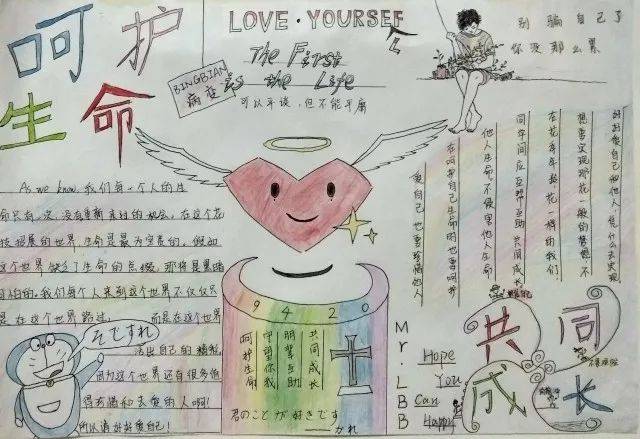 呵护
生命
LOVE·YOURSEF
The First
is the Life
BINGBIAN
病变
可以平淡，但不能平庸
别骗自己了
你没那么累
As we know, 我们每一个人的生
命只有一次，没有重新来过的机会，在这个花
枝招展的世界，生命是最为宝贵的，假如
这个世界缺少了生命的点缀，那将是黑暗
可怕的。我们每个人来到这个世界不仅仅只
是在这个世界路过，而是在这个世界
活出自己的精彩
因为这个世界还有很多值
得我们和去爱的人啊！
所以请好好爱自己！
そですれ
9420
呵护生命
守望你我
朋辈互助
共同成长
君のことが好きです
かれ
Mr.LBB
Hope
You
Can
Happy
好好爱自己和他人，凭什么去实现
想要实现那花一般的梦想，不
在花季年龄花一样的我们，
同学间应互帮互助共同成长
他人生命，不侵害他人生命
在呵护自己生命时也要呵护
爱自己，也要珍惜他人
共同
成长